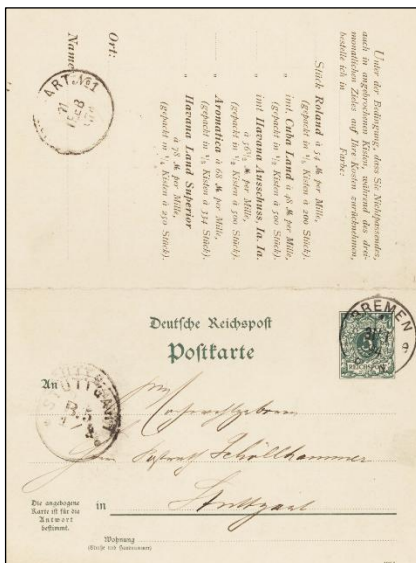 Unter der Bedingung, dass Sie Nichtpassendes,
auch in angebrochenen Kisten, während des drei-
monatlichen Zieles auf Ihre Kosten zurücknehmen,
bestelle ich in Farbe:
Stück Roland à 54 M per Mille,
(gepackt in Kisten à 200 Stück).
" imt. Cuba Land à 48 M per Mille,
(gepackt in Kisten à 500 Stück).
" imt Havana Ausschuss, Ia. Ia.
per Mille,
(gepackt in Kisten à 500 Stück).
" Aromatica à 68 M per Mille,
(gepackt in Kisten à 334 Stück).
" Havana Land Superior
à 78 M per Mille,
(gepackt in ¼ Kisten à 250 Stück).
Name
Ort:
ART. №1
Deutsche Reichspost
Postkarte
BREMEN
REICHSPOST
An
STUTTGART
Hochwohlgeboren
Herrn Schöllhammer
in Stuttgart
Die angebogene
Karte ist für die
Antwort
bestimmt.
Wohnung
(Straße und Hausnummer)